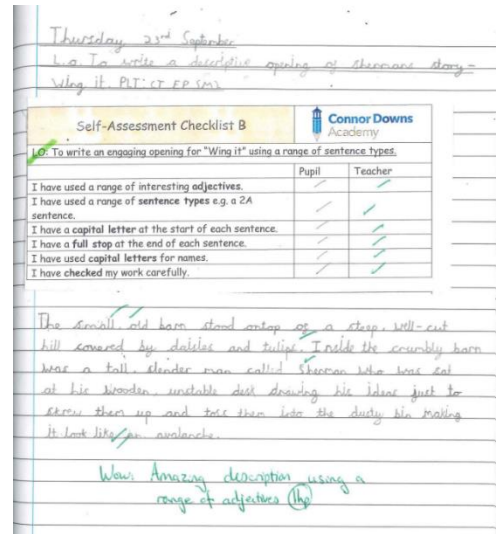 Thursday 23rd September
L.o. To write a descriptive opening of shermans story -
Wing it. PLT: CT EP SM2
Self-Assessment Checklist B
Connor Downs
Academy
LO: To write an engaging opening for "Wing it" using a range of sentence types.
Pupil Teacher
I have used a range of interesting adjectives.
I have used a range of sentence types e.g. a 2A
sentence.
I have a capital letter at the start of each sentence.
I have a full stop at the end of each sentence.
I have used capital letters for names.
I have checked my work carefully.
The small, old barn stood ontop of a steep, well-cut
hill covered by daisies and tulips. Inside the crumbly barn
was a tall, slender man called Sherman who was sat
at his wooden, unstable desk drawing his ideas just to
screw them up and toss them into the dusty bin making
it look like an avalanche.
Wow: Amazing description using a
range of adjectives